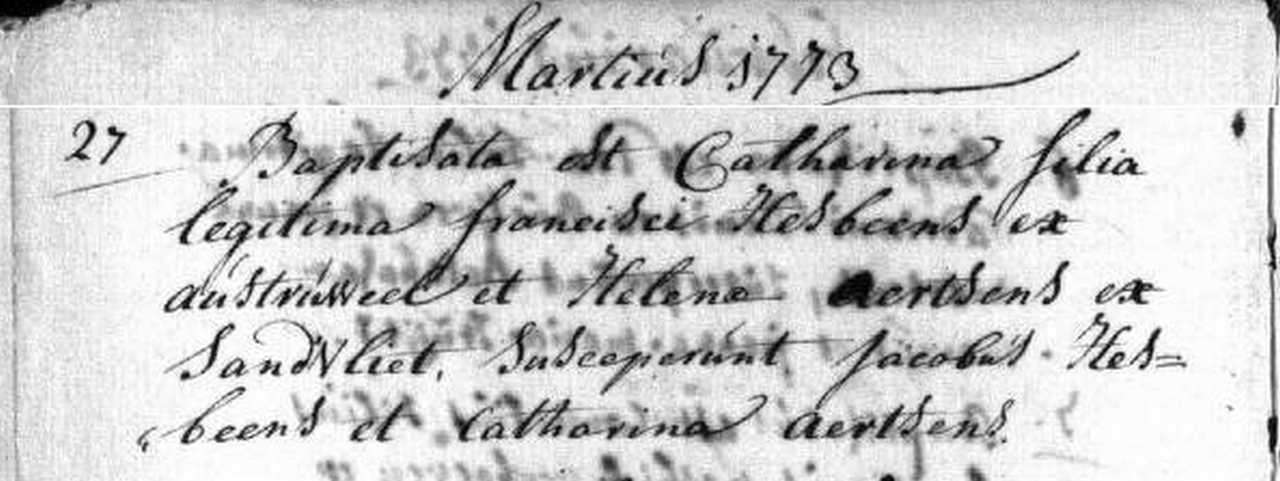 Martius 1773
27 Baptisata est Catharina filia
legitima francisci Hesbeens ex
austruweel et Helena Aertsens ex
Sandvliet. Susceperunt Jacobus Hes=
beens et Catharina Aertsens.